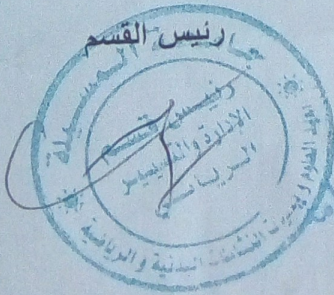 رئيس القسم
جامعة المسيلة
رئيس قسم
الإدارة والتسيير
الرياضي
النشاطات البدنية والرياضية